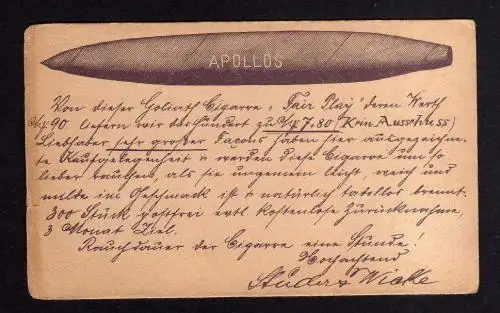 APOLLOS
Von dieser Goliath Cigarre „Fair Play" deren Werth
M 90. liefern wir das Hundert zu M 7,80 (Kein Ausschuss)
Liebhaber sehr großer Facons haben hier ausgezeichne-
te Kaufgelegenheit & werden diese Cigarre um so
lieber rauchen, als sie ungemein leicht, weich und
milde im Geschmack ist & natürlich tadellos brennt.
300 Stück postfrei evtl kostenlose Zurücknahme,
3 Monat Ziel.
Rauchdauer der Cigarre eine Stunde!
Hochachtend
Wicke